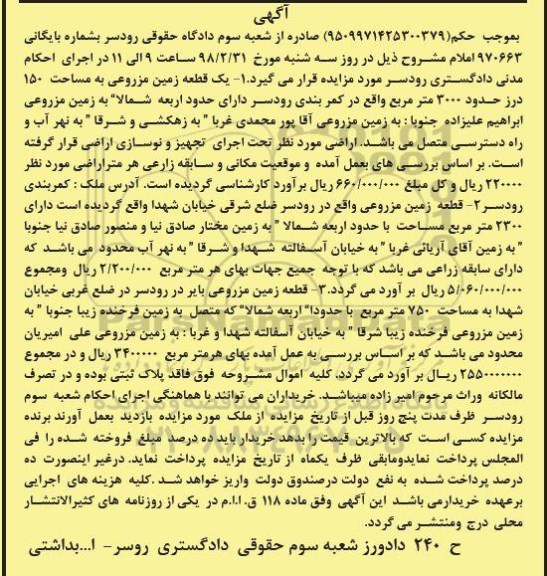 آگهی
بموجب حکم(۹۵۰۹۹۷۱۴۲۵۳۰۰۳۷۹) صادره از شعبه سوم دادگاه حقوقی رودسر بشماره بایگانی
۹۷۰۶۶۳ املام مشروح ذیل در روز سه شنبه مورخ ۹۸/۲/۳۱ ساعت ۹ الی ۱۱ در اجرای احکام
مدنی دادگستری رودسر مورد مزایده قرار می گیرد.۱- یک قطعه زمین مزروعی به مساحت ۱۵۰
درز حدود ۳۰۰۰ متر مربع واقع در کمر بندی رودسر دارای حدود اربعه شمالا" به زمین مزروعی
ابراهیم علیزاده جنوبا : به زمین مزروعی آقا پور محمدی غربا " به زهکشی و شرقا " به نهر آب و
راه دسترسی متصل می باشد. اراضی مورد نظر تحت اجرای تجهیز و نوسازی اراضی قرار گرفته
است. بر اساس بررسی های بعمل آمده و موقعیت مکانی و سابقه زارعی هر متراراضی مورد نظر
۲۲۰۰۰۰ ریال و کل مبلغ ۶۶۰/۰۰۰/۰۰۰ ریال برآورد کارشناسی گردیده است. آدرس ملک : کمربندی
رودسر۲- قطعه زمین مزروعی واقع در رودسر ضلع شرقی خیابان شهدا واقع گردیده است دارای
۲۳۰۰ متر مربع مساحت با حدود اربعه شمالا " به زمین مختار صادق نیا و منصور صادق نیا جنوبا
" به زمین آقای آریائی غربا " به خیابان آسفالته شهدا و شرقا " به نهر آب محدود می باشد که
دارای سابقه زراعی می باشد که با توجه جمیع جهات بهای هر متر مربع ۲/۲۰۰/۰۰۰ ریال ومجموع
۵/۰۶۰/۰۰۰/۰۰۰ ریال بر آورد می گردد.۳- قطعه زمین مزروعی بایر در رودسر در ضلع غربی خیابان
شهدا به مساحت ۷۵۰ متر مربع با حدودا" اربعه شمالا" که متصل به زمین فرخنده زیبا جنوبا " به
زمین مزروعی فرخنده زیبا شرقا " به خیابان آسفالته شهدا و غربا : به زمین مزروعی علی امیریان
محدود می باشد که بر اساس بررسی به عمل آمده بهای هرمتر مربع ۳۴۰۰۰۰۰ ریال و در مجموع
۲۵۵۰۰۰۰۰۰۰ ریال بر آورد می گردد. کلیه اموال مشروحه فوق فاقد پلاک ثبتی بوده و در تصرف
مالکانه وراث مرحوم امیر زاده میباشد. خریداران می توانند با هماهنگی اجرای احکام شعبه سوم
رودسر ظرف مدت پنج روز قبل از تاریخ مزایده از ملک مورد مزایده بازدید بعمل آورند برنده
مزایده کسی است که بالاترین قیمت را بدهد خریدار باید ده درصد مبلغ فروخته شده را فی
المجلس پرداخت نمایدومابقی ظرف یکماه از تاریخ مزایده پرداخت نماید. درغیر اینصورت ده
درصد پرداخت شده به نفع دولت درصندوق دولت واریز خواهد شد .کلیه هزینه های اجرایی
برعهده خریدارمی باشد این آگهی وفق ماده ۱۱۸ ق.ا.ا.م در یکی از روزنامه های کثیرالانتشار
محلی درج ومنتشر می گردد.
ح ۲۴۰ دادورز شعبه سوم حقوقی دادگستری روسر- ا...بداشتی